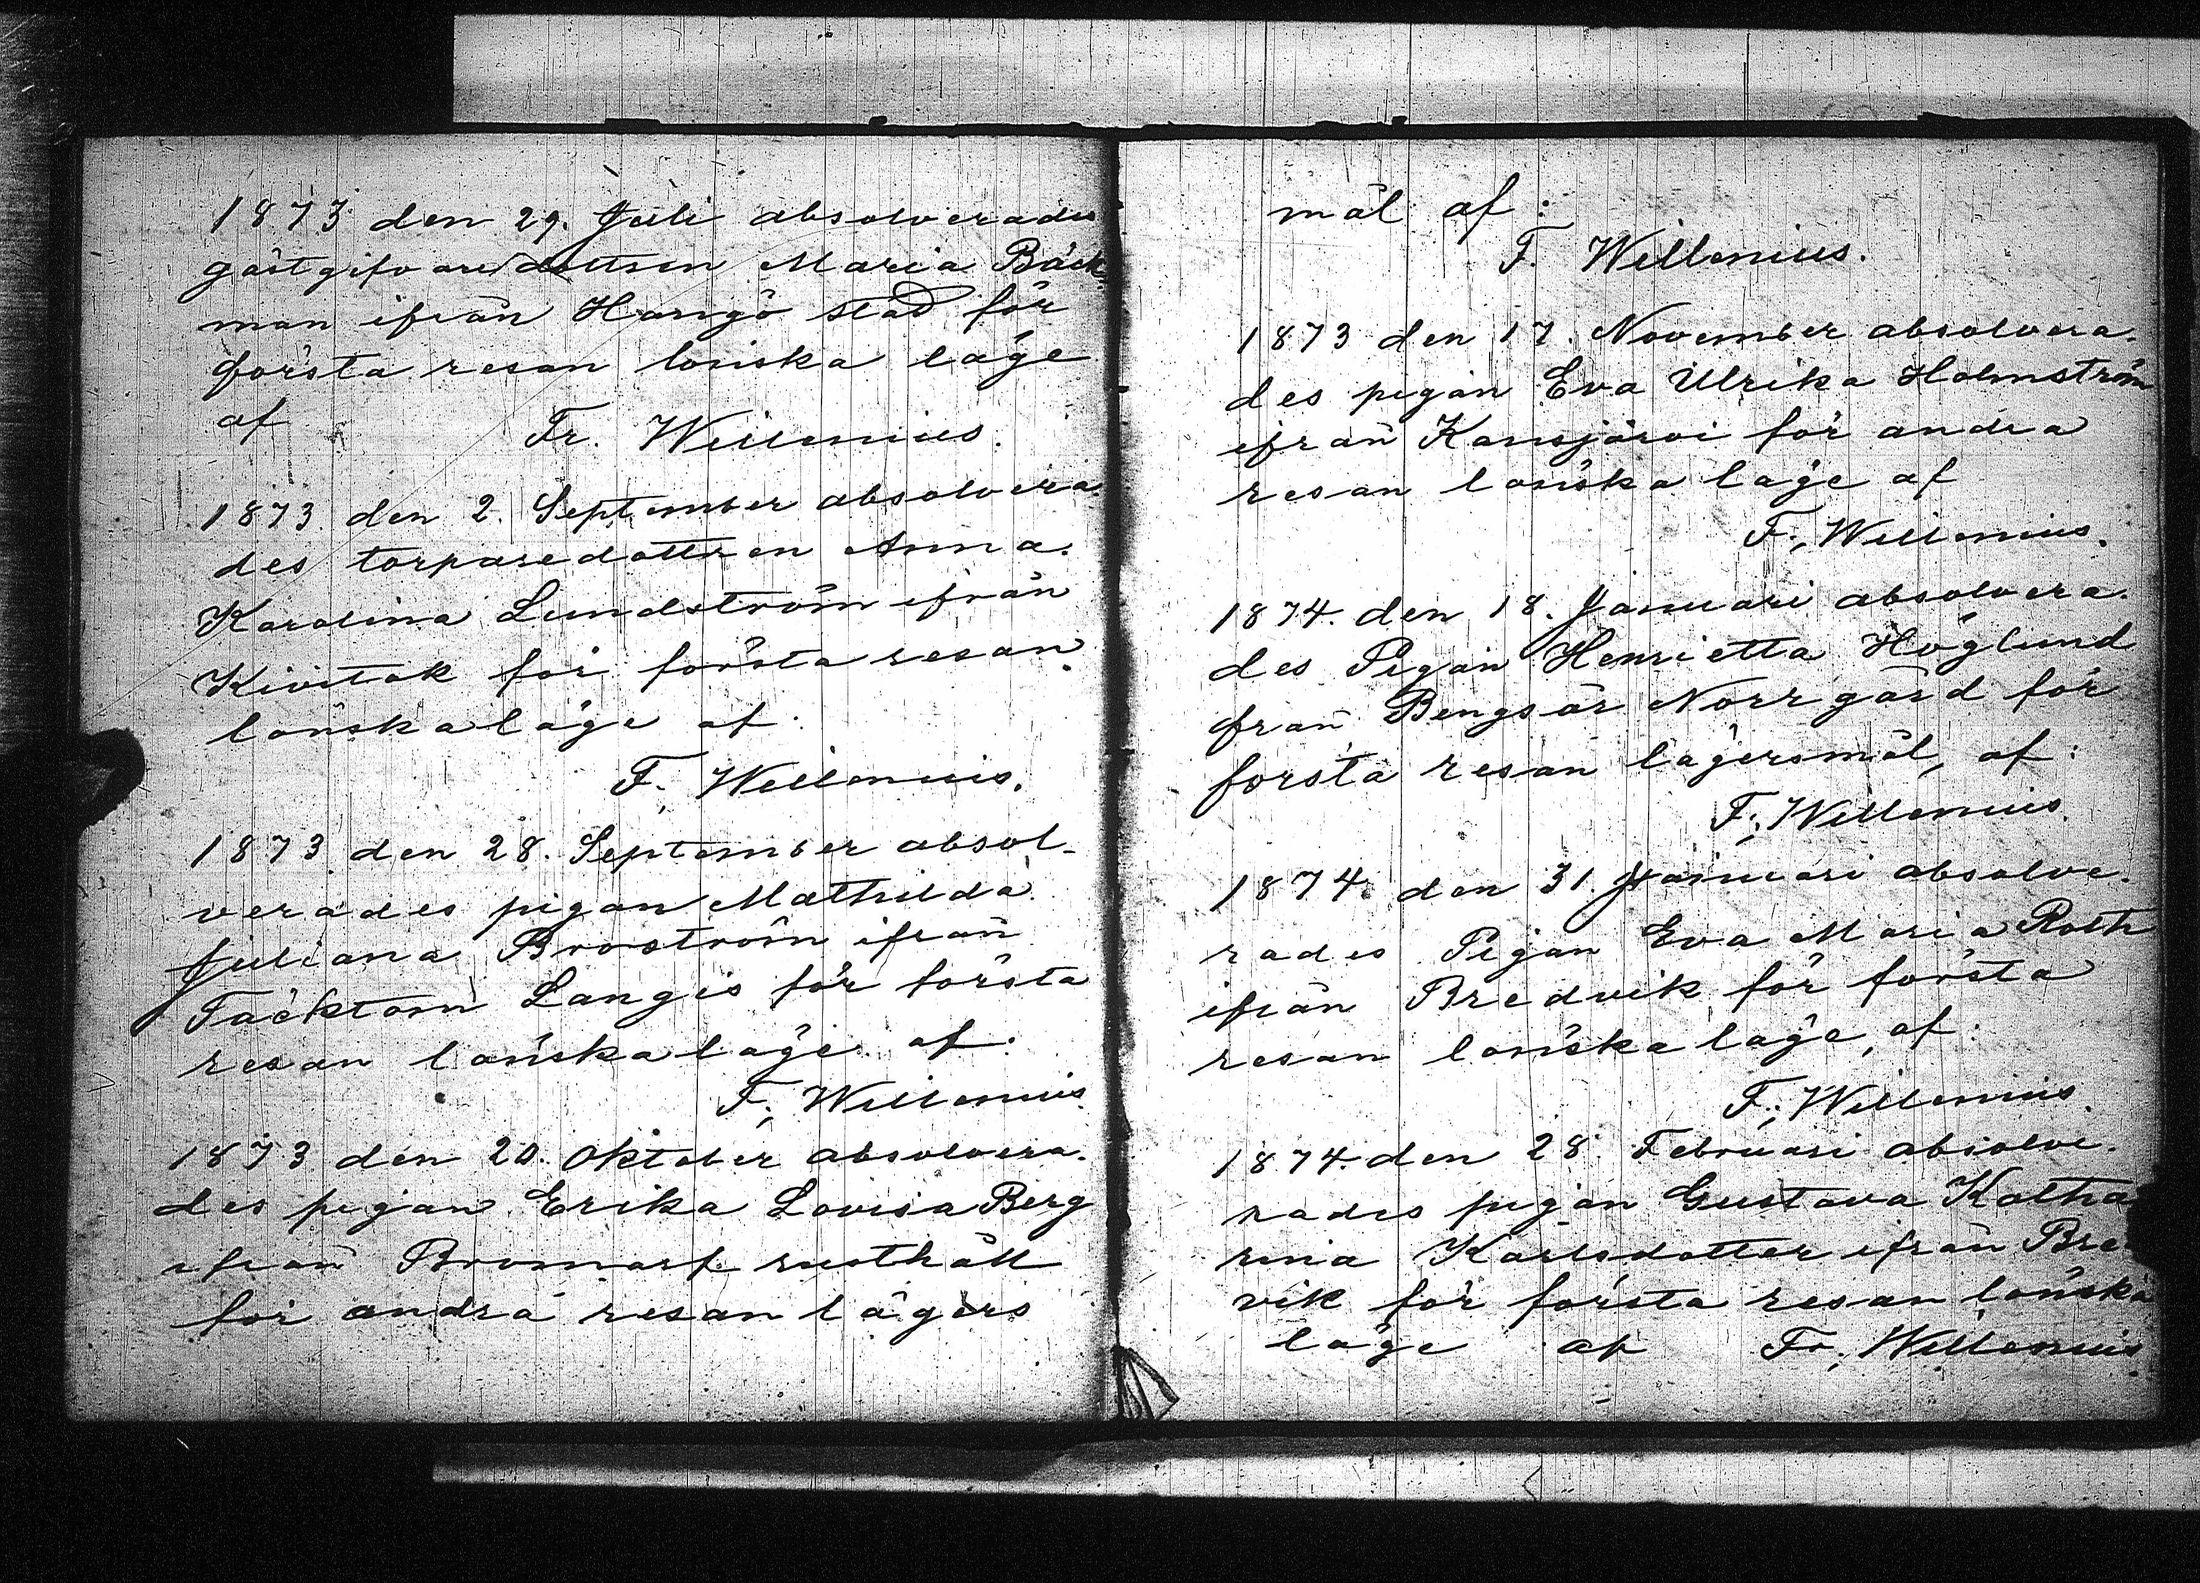 1873 den 29. Juli absolverades
gästgifvaredottren Maria Bäck
man ifrån Hangö stad för
första resan lönska läge
af
Fr. Willenius.
1873 den 2. September absolvera.
des torparedottren Anna.
Karolina Lundström ifrån
Kivitok för första resan
lönskaläge af.
F. Willenius.
1873 den 28. September absol-
verades pigan Mathilda
Juliana Broström ifrån
Täcktom Langis för första
resan lönskaläge af.
F. Willenius
1873 den 20. Oktober absolvera.
des pigan Erika Lovisa Berg
ifrån Bromarf rusthåll
för andra resan lägers
mål af:
F. Willenius.
1873 den 17. November absolvera.
des pigan Eva Ulrika Holmström
ifrån Kansjärvi för andra
resan lönska läge af
F. Willenius.
1874. den 18. Januari absolvera.
des Pigan Henrietta Höglund
från Bengsår Norrgård för
första resan lägersmål, af:
F. Willenius.
1874. den 31. Januari absolve.
rades Pigan Eva Maria Roth
ifrån Bredvik för första
resan lönska läge, af:
F. Willenius.
1874. den 28 Februari absolve.
rades pigan Gustava Katha
rina Karlsdotter ifrån Bre
vik för första resan lönska
läge af Fr. Willenius